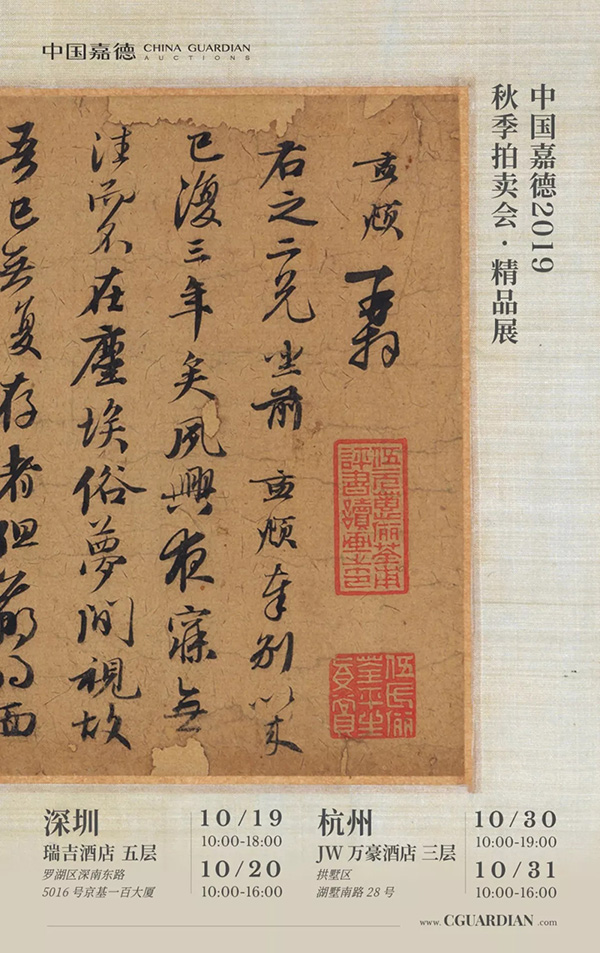 中国嘉德 CHINA GUARDIAN
AUCTIONS
中国嘉德2019
秋季拍卖会·精品展
孟頫再拜
右之二兄坐前孟頫奉别以来
已復三年矣夙興夜寐無
往而不在塵埃俗夢間視故
吾已無复存者但羸得面
伍元蕙儷荃甫
評書讀畫之印
伍氏儷
荃平生
真賞
深圳
瑞吉酒店 五层
罗湖区深南东路
5016 号京基一百大厦
10/19
10:00-18:00
10/20
10:00-16:00
杭州
JW 万豪酒店 三层
拱墅区
湖墅南路 28 号
10/30
10:00-19:00
10/31
10:00-16:00
www.CGUARDIAN.com